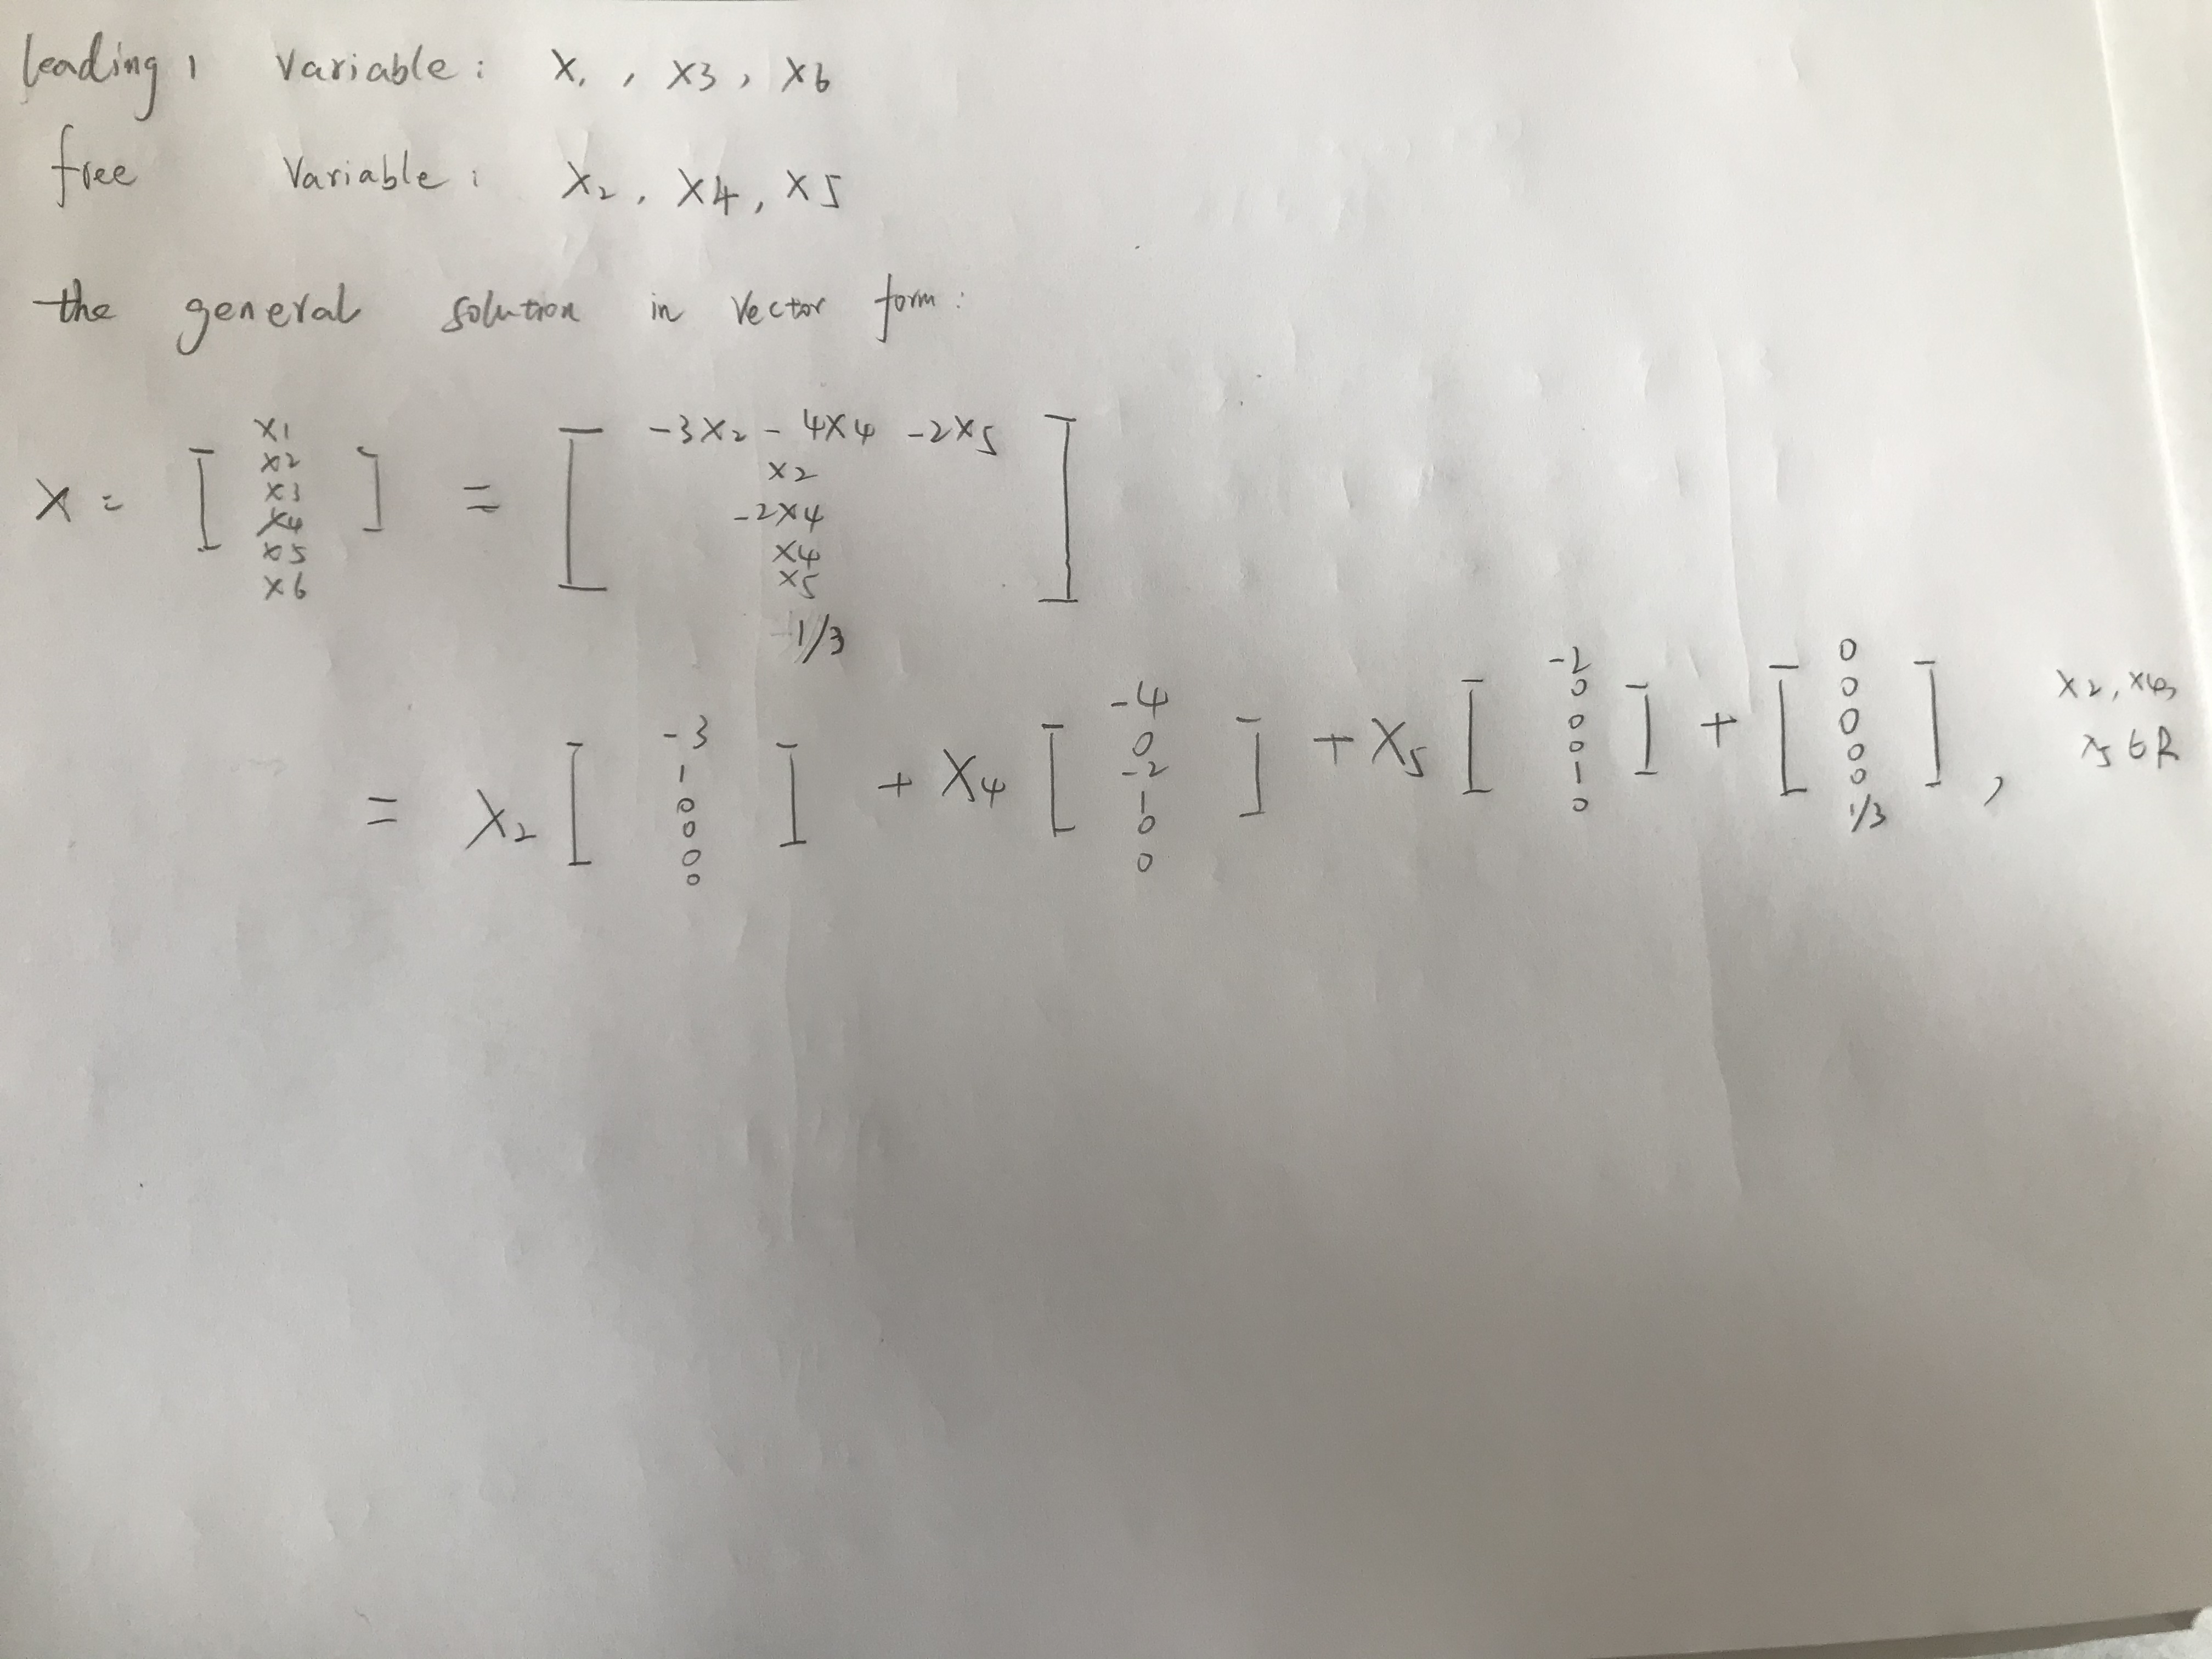 leading 1 variable: x1, x3, x6
free variable: x2, x4, x5
the general solution in vector form:
x = [ x1 x2 x3 x4 x5 x6 ] = [ -3x2 - 4x4 - 2x5
x2
-2x4
x4
x5
1/3 ]
= x2 [ -3 1 0 0 0 0 ] + x4 [ -4 0 -2 1 0 0 ] + x5 [ -2 0 0 0 1 0 ] + [ 0 0 0 0 0 1/3 ] , x2, x4,
x5 ∈ R